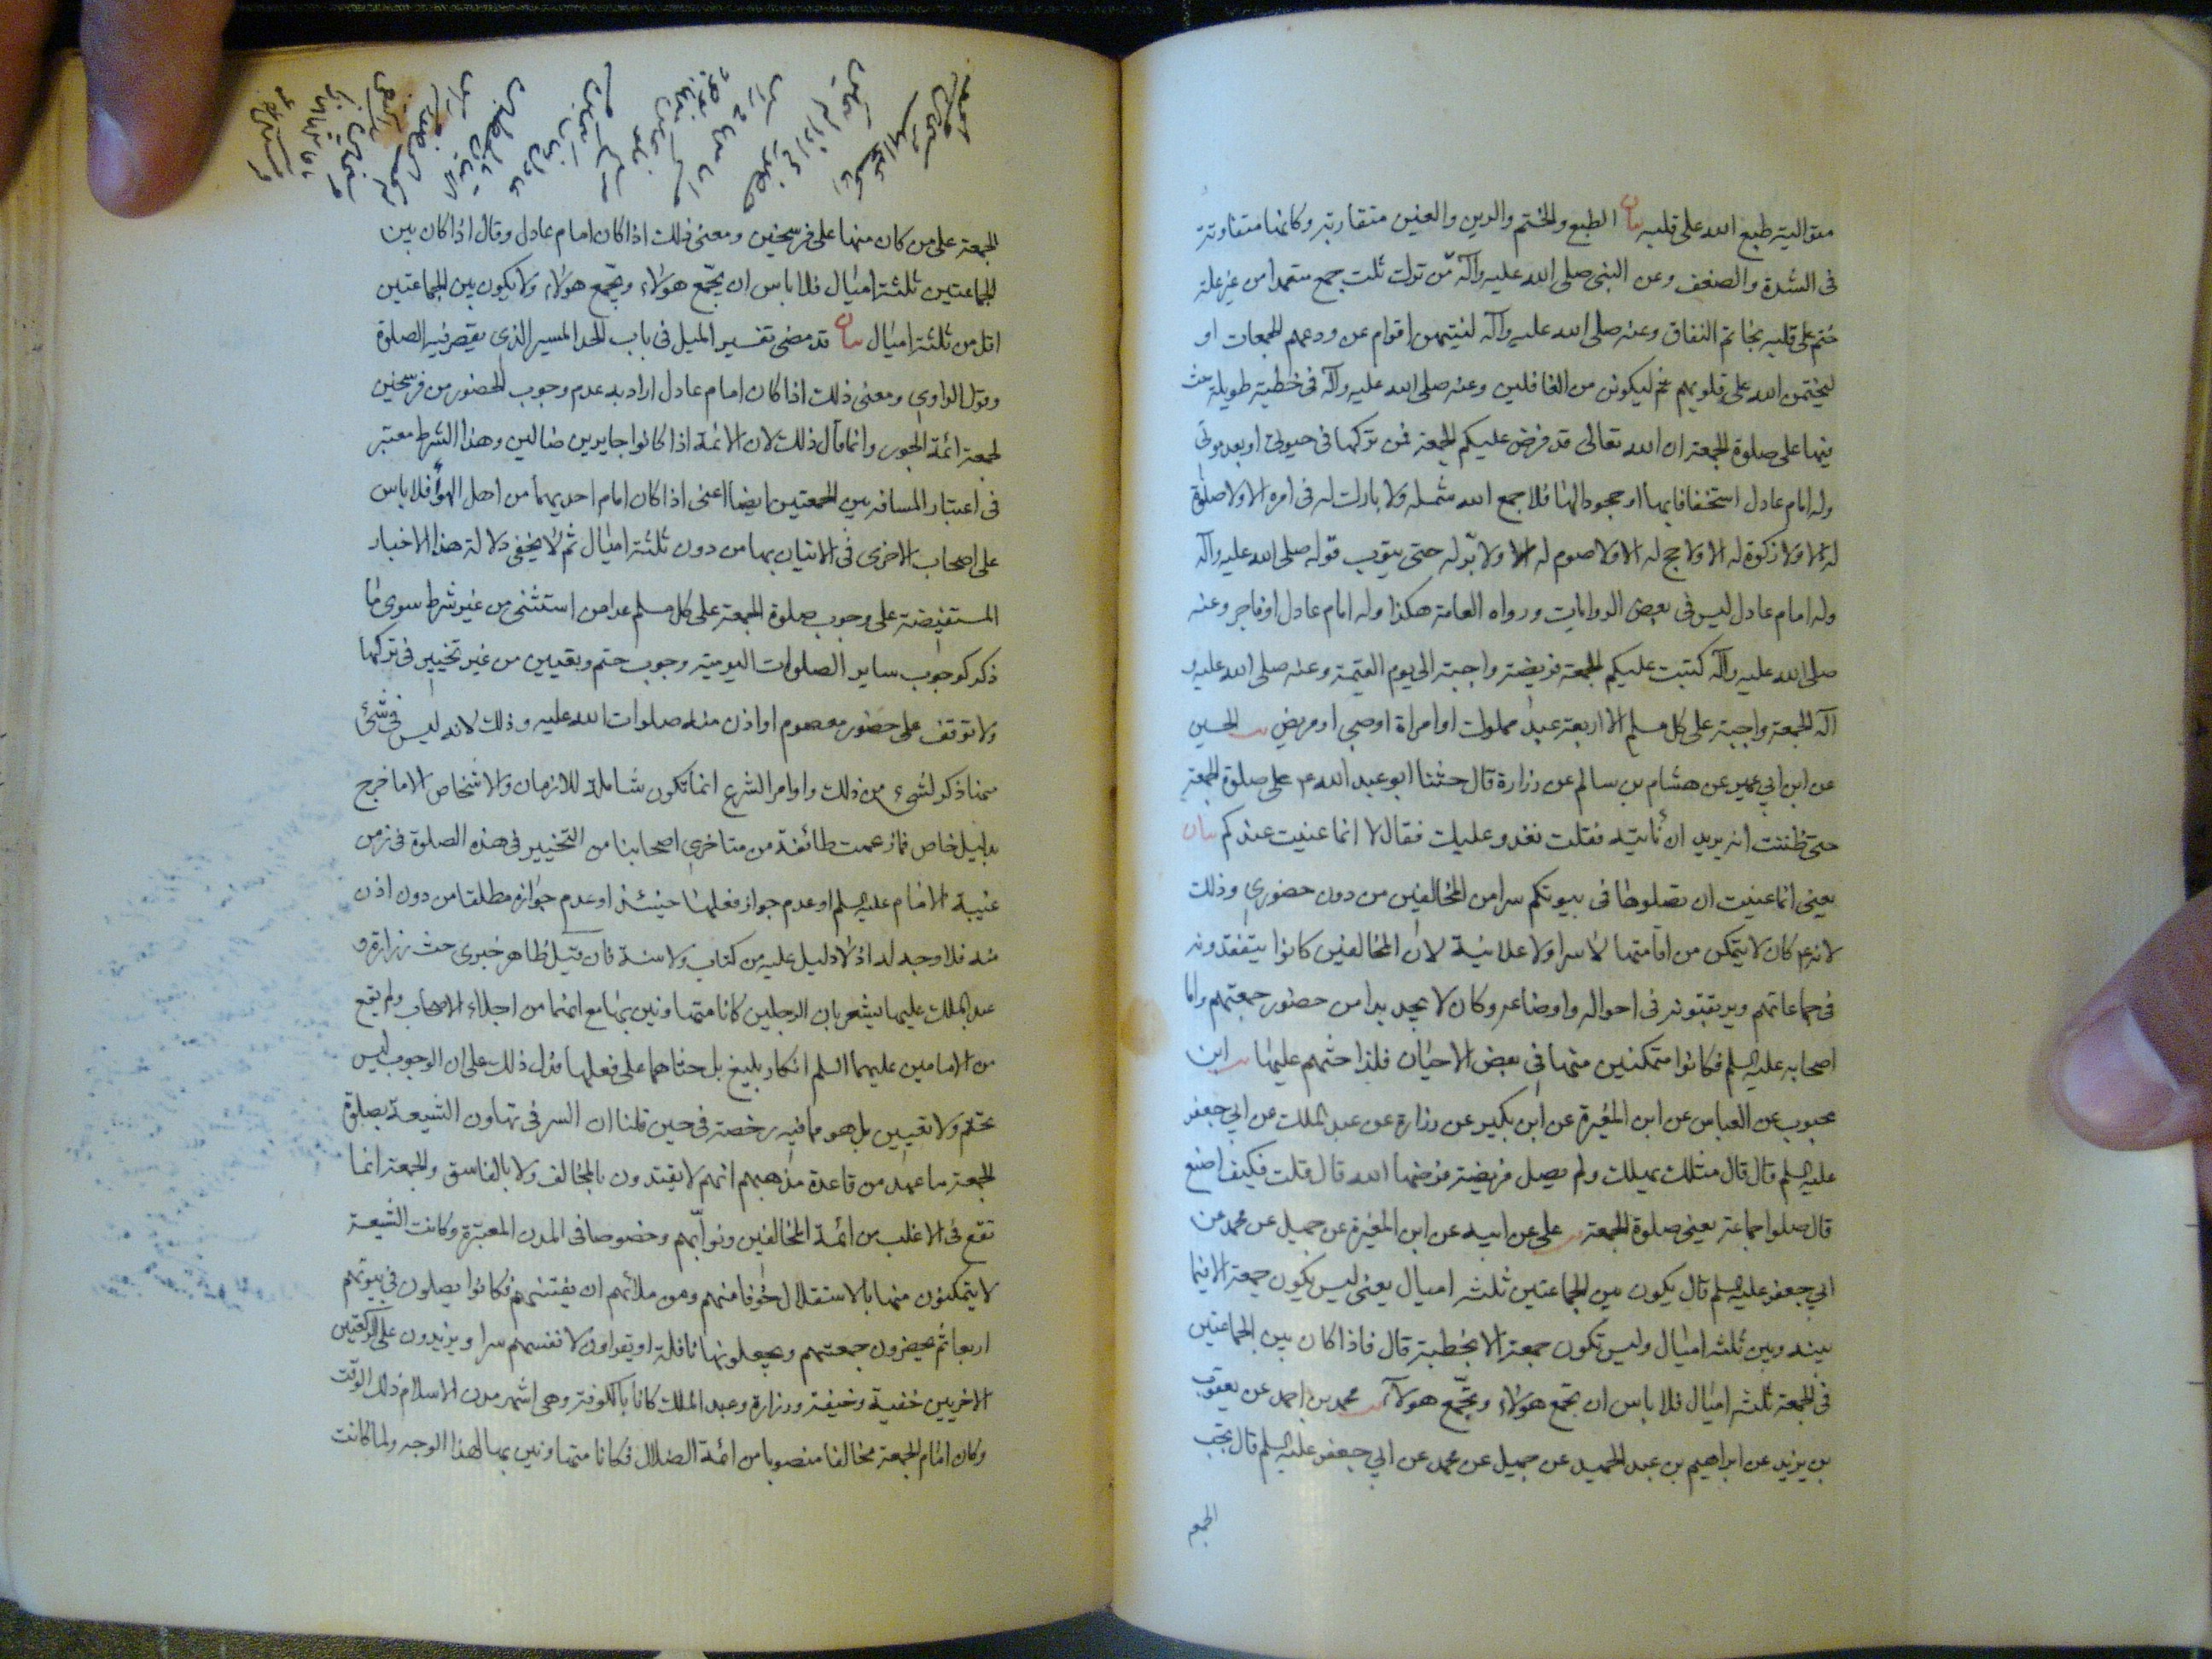 متوالية طبع الله على قلبه بيان الطبع والختم والرين والغين متقاربة وكانها متفاوتة
فى الشدة والضعف وعن النبى صلى الله عليه وآله من ترك ثلث جمع متعمدا من غير علة
ختم على قلبه بخاتم النفاق وعنه صلى الله عليه وآله لينتهين اقوام عن ودعهم الجمعات او
ليختمن الله على قلوبهم ثم ليكونن من الغافلين وعنه صلى الله عليه وآله فى خطبة طويلة حث
فيها على صلوة الجمعة ان الله تعالى قد فرض عليكم الجمعة فمن تركها فى حيوتى او بعد موتى
وله امام عادل استخفافا بها او جحودا لها فلا جمع الله شمله ولا بارك له فى امره الا ولا صلوة
له الا ولا زكوة له الا ولا حج له الا ولا صوم له الا ولا بر له حتى يتوب قوله صلى الله عليه وآله
وله امام عادل ليس فى بعض الروايات ورواه العامة هكذا وله امام عادل او فاجر وعنه
صلى الله عليه وآله كتبت عليكم الجمعة فريضة واجبة الى يوم القيمة وعنه صلى الله عليه و
آله الجمعة واجبة على كل مسلم الا اربعة عبد مملوك او امراة او صبى او مريض الحسين
عن ابن ابي عمير عن هشام بن سالم عن زرارة قال حثنا ابو عبد الله ع على صلوة الجمعة
حتى ظننت انه يريد ان نأتيه فقلت نغدو عليك فقال لا انما عنيت عندكم بيان
يعنى انما عنيت ان تصلوها فى بيوتكم سرا من المخالفين من دون حضوري وذلك
لانه ع كان لا يتمكن من اقامتها لا سرا ولا علانية لان المخالفين كانوا يتفقدونه
فى جماعاتهم ويرتقبونه فى احواله واوضاعه وكان لا يجد بدا من حضور جمعتهم واما
اصحابه عليه السلم فكانوا متمكنين منها فى بعض الاحيان فلذا حثهم عليها ابن
محبوب عن العباس عن ابن المغيرة عن ابن بكير عن زرارة عن عبد الملك عن ابي جعفر
عليه السلم قال قال مثلك يهلك ولم يصل فريضة فرضها الله قال قلت فكيف اصنع
قال صلوا جماعة يعنى صلوة الجمعة على عن ابيه عن ابن المغيرة عن جميل عن محمد عن
ابي جعفر عليه السلم قال يكون بين الجماعتين ثلثه اميال يعنى ليس يكون جمعة الا فيما
بينه وبين ثلثه اميال وليس تكون جمعة الا بخطبة قال فاذا كان بين الجماعتين
فى الجمعة ثلثه اميال فلا باس ان يجمع هؤلاء ويجمع هولآء محمد بن احمد عن يعقوب
بن يزيد عن ابراهيم بن عبد الحميد عن جميل عن محمد عن ابي جعفر عليه السلم قال تجب
الجمعه
الجمعة على من كان منها على فرسخين ومعنى ذلك اذا كان امام عادل وقال اذا كان بين
الجماعتين ثلثة اميال فلا باس ان يجمع هؤلاء ويجمع هؤلاء ولا يكون بين الجماعتين
اقل من ثلثة اميال بيان قد مضى تفسير الميل فى باب الحد المسير الذى يقصر فيه الصلوة
وقول الراوي ومعنى ذلك اذا كان امام عادل اراد به عدم وجوب الحضور من فرسخين
لجمعة ائمة الجور وانما قال ذلك لان الائمة اذا كانوا جايرين ضالين وهذا الشرط معتبر
فى اعتبار المسافة بين الجمعتين ايضا اعنى اذا كان امام احديهما من اهل الهوا فلا باس
على اصحاب الاخرى فى الاتيان بها من دون ثلثة اميال ثم لا يخفى دلالة هذا الاخبار
المستفيضة على وجوب صلوة الجمعة على كل مسلم عدا من استثنى من غير شرط سوى ما
ذكر كوجوب ساير الصلوات اليومية وجوب حتم وتعيين من غير تخيير فى تركها
ولا توقف على حضور معصوم او اذن منه صلوات الله عليه وذلك لانه ليس فى شئ
مما ذكر لشيء من ذلك واوامر الشرع انما تكون شاملة للازمان والاشخاص الا ما خرج
بدليل خاص فما زعمت طائفة من متاخري اصحابنا من التخيير فى هذه الصلوة فى زمن
غيبة الامام عليه السلم او عدم جواز فعلها حينئذ او عدم جوازه مطلقا من دون اذن
منه فلا وجه له اذ لا دليل عليه من كتاب ولا سنة فان قيل ظاهر خبرى حث زرارة و
عبد الملك عليها يشعر بان الرجلين كانا متهاونين بها مع انهما من اجلاء الاصحاب ولم يقع
من الامامين عليهما السلم انكار بليغ بل حثاهما على فعلها فدل ذلك على ان الوجوب ليس
بحتم ولا تعيين بل هو مما فيه رخصة فى حين قلنا ان السر فى تهاون الشيعة بصلوة
الجمعة ما عهد من قاعدة مذهبهم انهم لا يقتدون بالمخالف ولا بالفاسق والجمعة انما
تقع فى الاغلب من ائمة المخالفين ونوابهم وخصوصا فى المدن المعتبرة وكانت الشيعة
لا يتمكنون منها بالاستقلال خوفا منهم ومن ملائهم ان يفتنهم فكانوا يصلون فى بيوتهم
اربعا ثم يحضرون جمعتهم ويجعلونها نافلة او يقراون لانفسهم سرا ويزيدون على الركعتين
الاخريين خفية وخيفة وزرارة وعبد الملك كانا بالكوفة وهى اشهر مدن الاسلام ذلك الوقت
وكان امام الجمعة مخالفا منصوبا من ائمة الضلال فكانا متهاونين بها لهذا الوجه ولما كانت